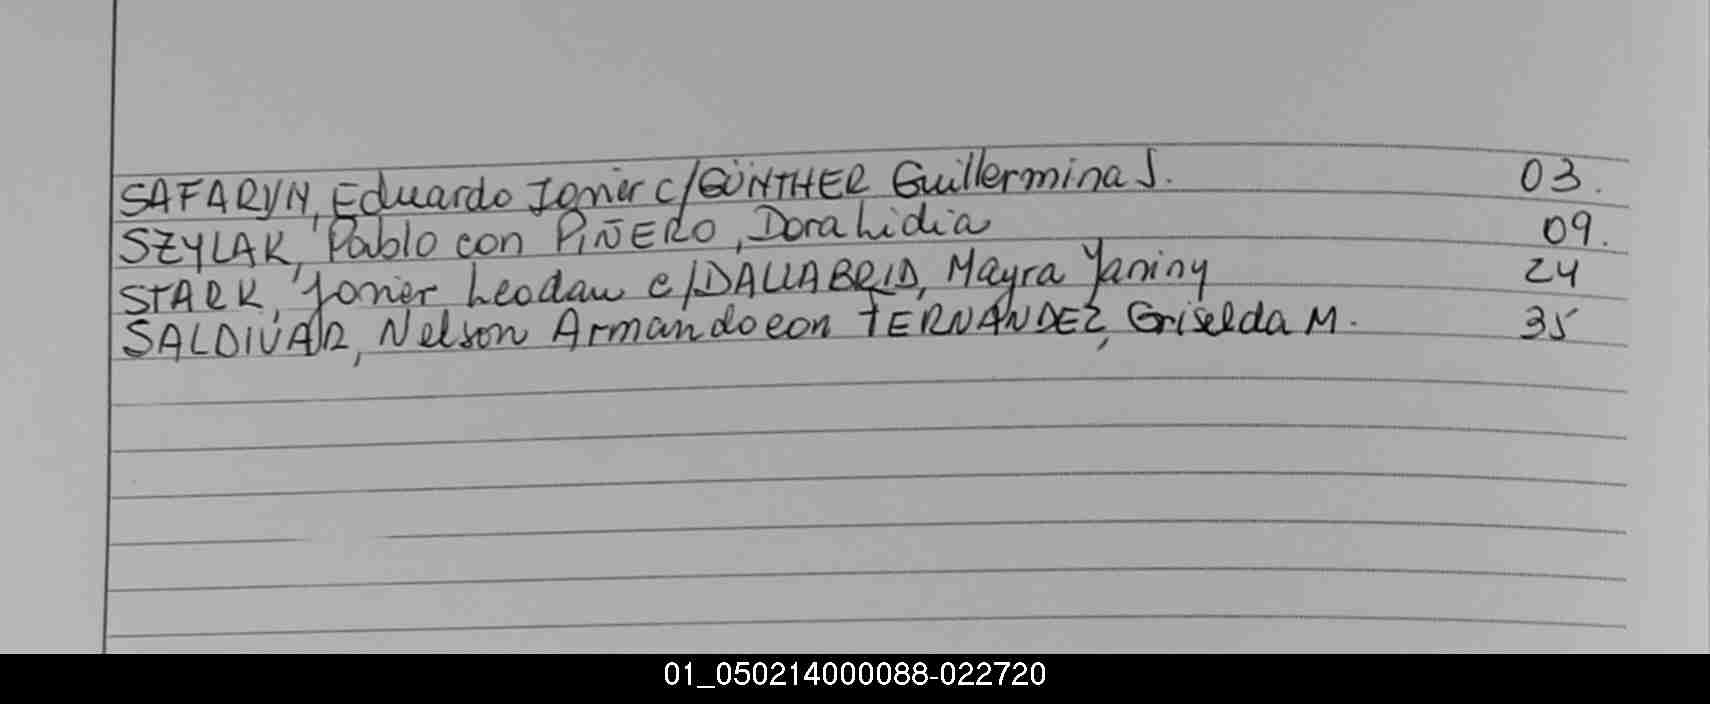 SAFARYN, Eduardo Jomer c/GÜNTHER Guillermina S. 03.
SZYLAK, Pablo con PIÑERO, Dora Lidia 09.
STARK, Jomer Leodan c/DALLABRID, Mayra Yaniny 24
SALDIVAR, Nelson Armando con FERNANDEZ, Griselda M. 35
01_050214000088-022720